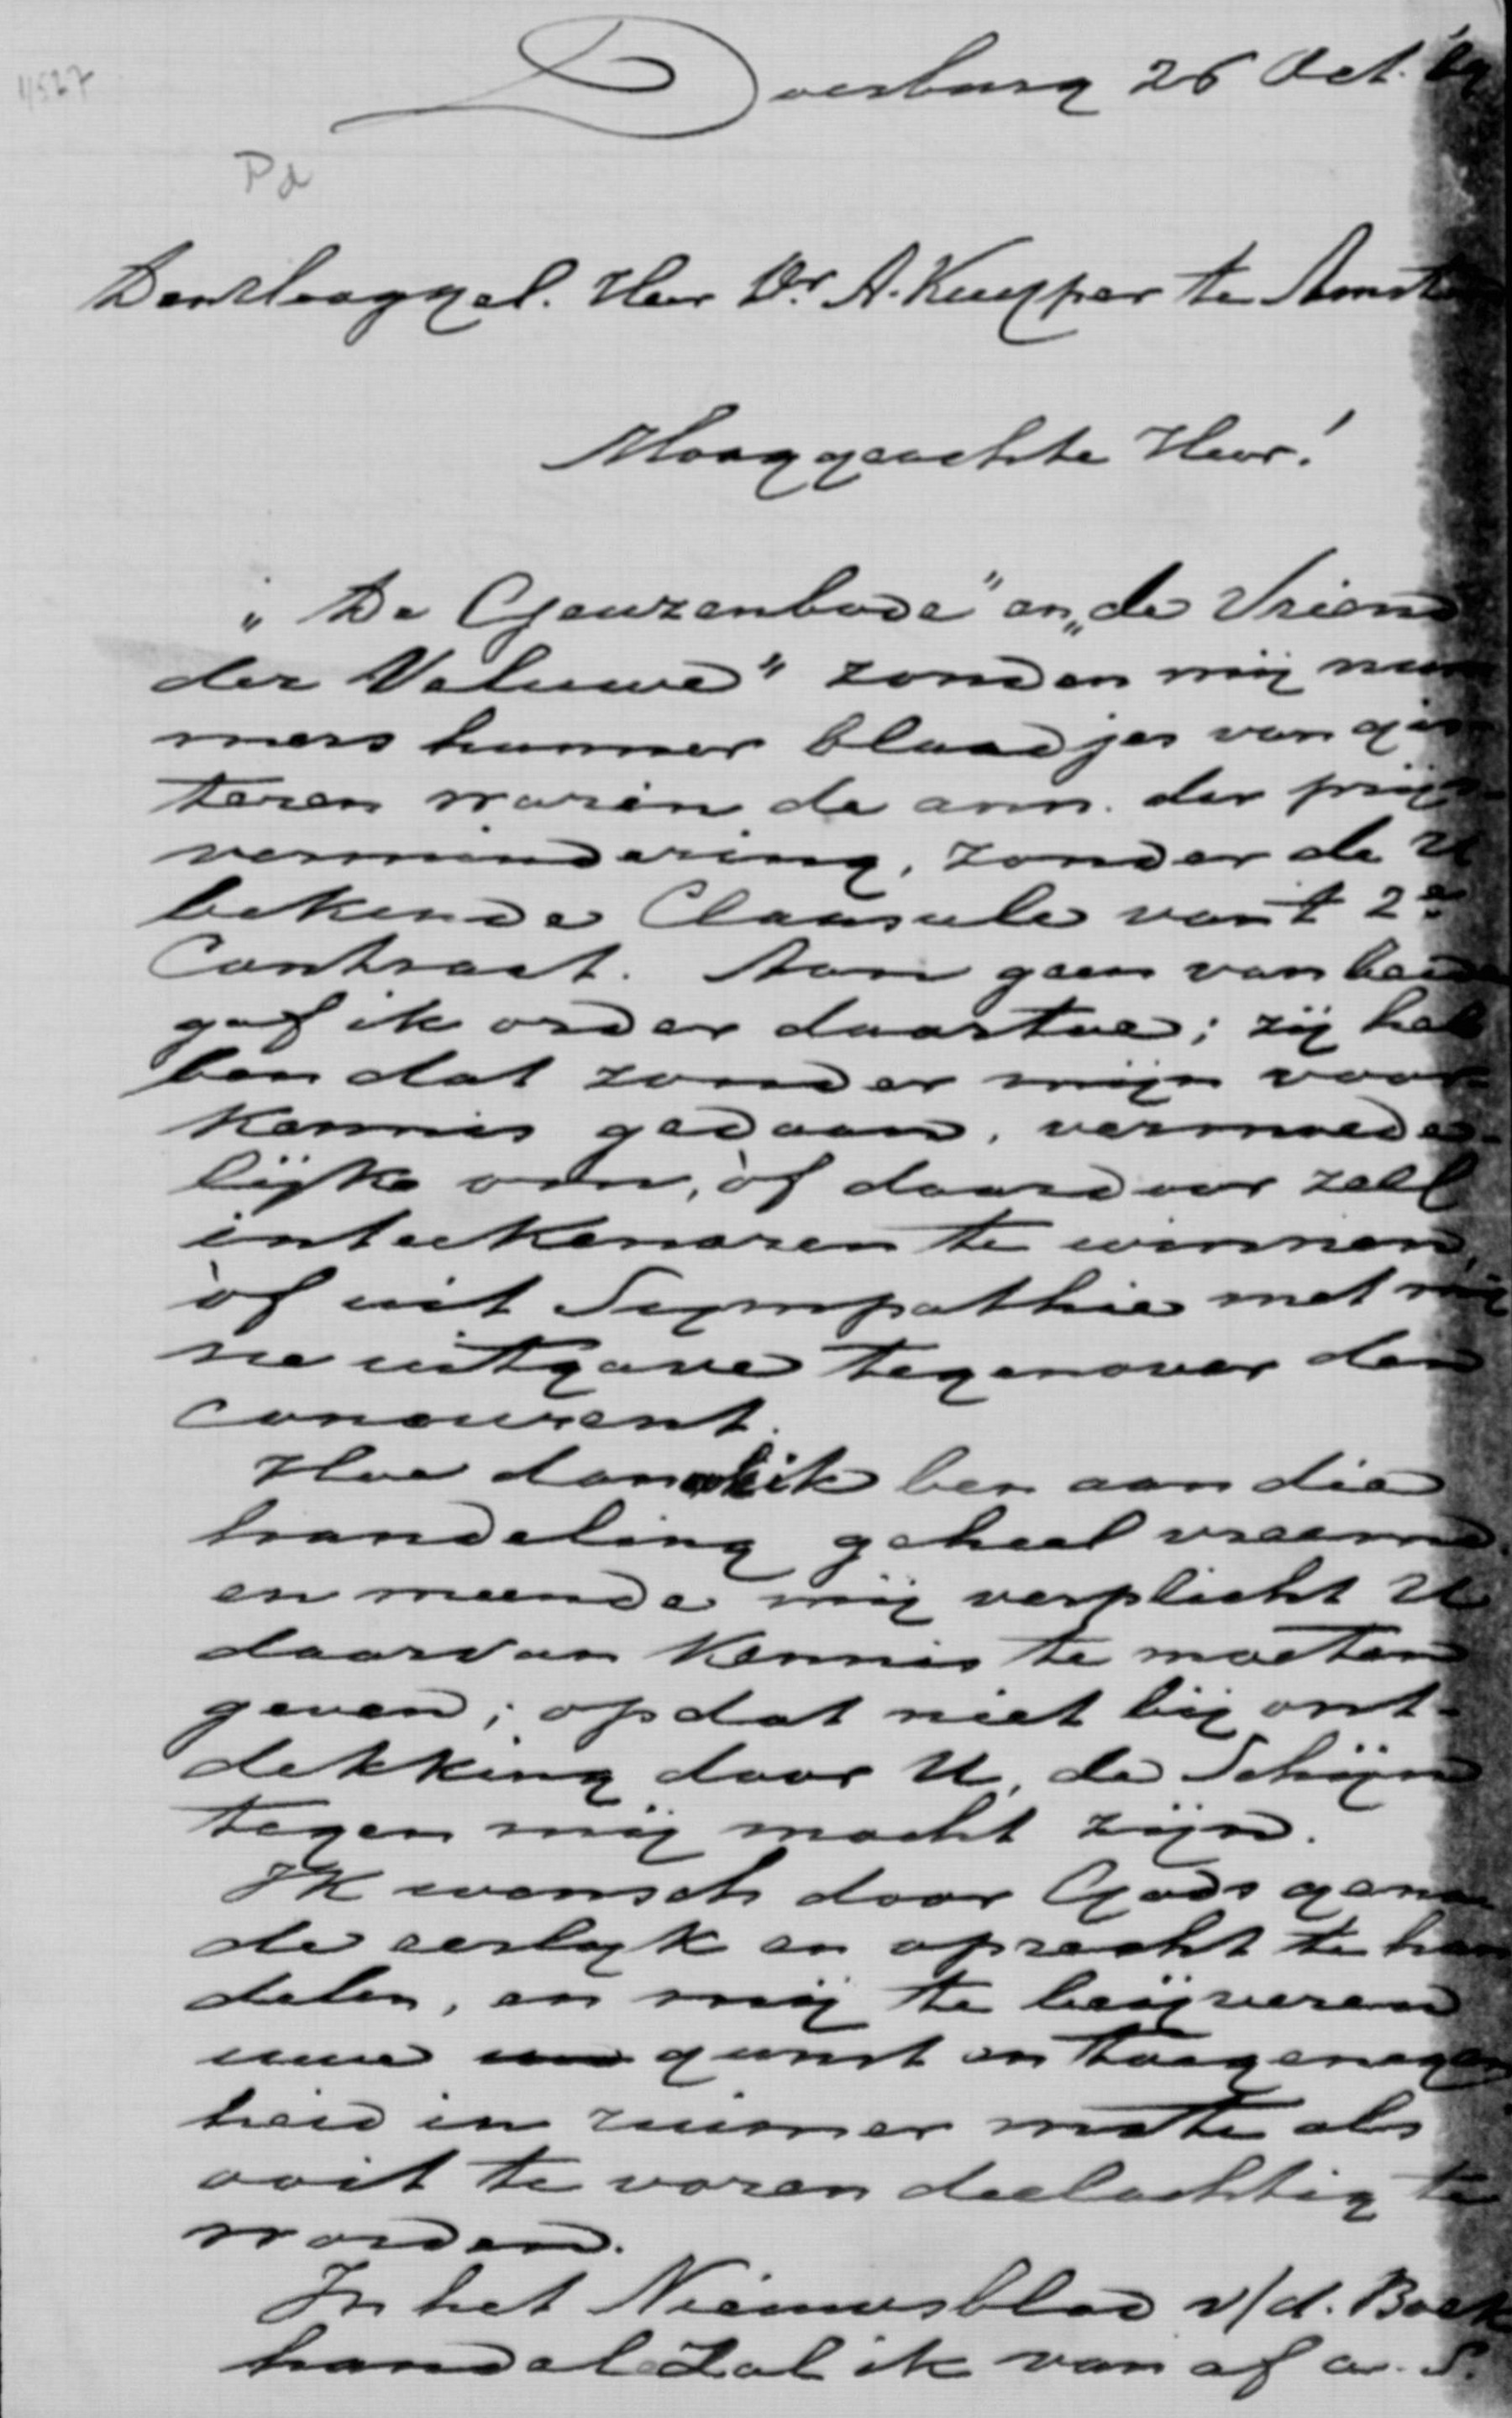 4527
Doesburg 26 Oct. '89
Pd
Den Hooggel. Heer Dr. A. Kuyper te Amst
Hooggeachte Heer!
„De Geuzenbode" en „de Vriend
der Veluwe" zonden mij num
mers hunner blaadjes van gis
teren waarin de ann. der prijs-
vermindering, zonder de U
bekende Clausule van 't 2e
Contract. Aan geen van beide
gaf ik order daartoe; zij heb
ben dat zonder mijn voor-
kennis gedaan, vermoede-
lijke om, òf daardoor zelf
inteekenaren te winnen,
òf uit Sympathie met mij
ne uitgave tegenover den
concurent.
Hoe dan ook ik ben aan die
handeling geheel vreemd
en meende mij verplicht U
daarvan kennis te moeten
geven; opdat niet bij ont-
dekking door U, de Schijn
tegen mij mocht zijn.
Ik wensch door Gods gena
de eerlyk en oprecht te han
delen, en mij te beijveren
uwe gunst en toegenegen
heid in ruimer mate als
ooit te voren deelachtig te
worden.
In het Nieuwsblad v/d. Boek
handel Zal ik van af a. S.